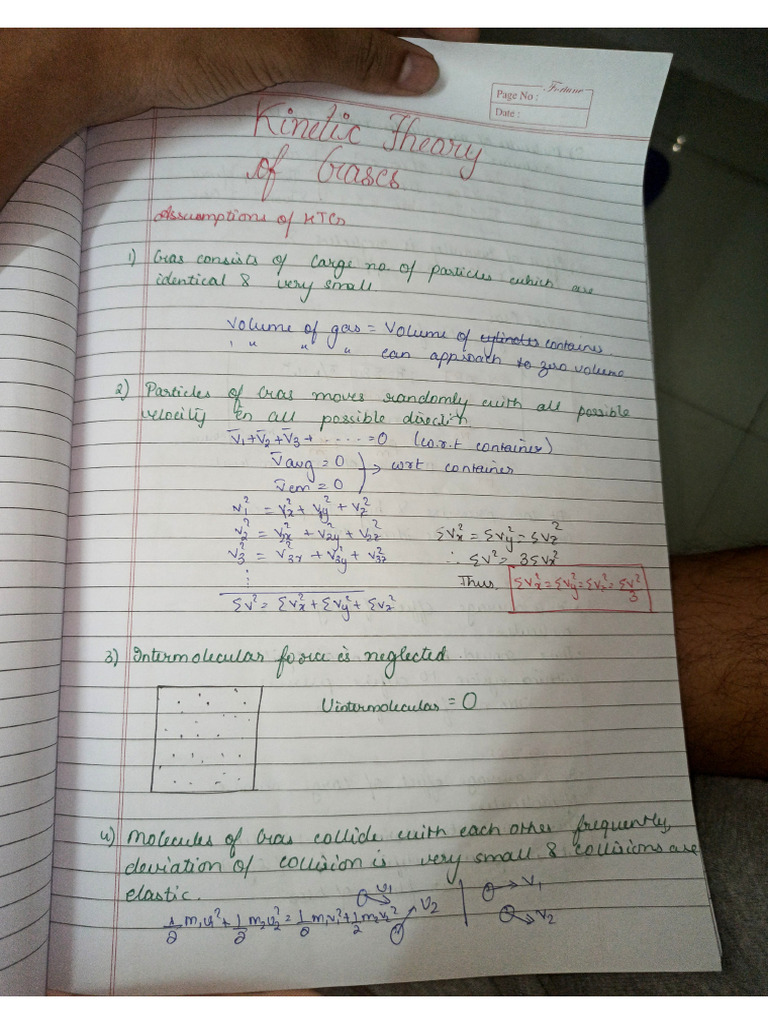 Fortune
Page No :
Date :
Kinetic Theory
of Gases
Assumptions of KTG
1) Gas consists of large no. of particles which are
identical & very small
Volume of gas = Volume of cylinder container
" " " " can approach to zero volume
2) Particles of Gas moves randomly with all possible
velocity in all possible direction
v̄₁+v̄₂+v̄₃+ ...... =0 (w.r.t container)
v̄avg = 0
v̄cm = 0
wrt container
v₁² = vx² + vy² + vz²
v₂² = v₂x² + v₂y² + v₂z²
v₃² = v₃x² + v₃y² + v₃z²
⋮
Σv² = Σvx² + Σvy² + Σvz²
Σvx² = Σvy² = Σvz²
∴ Σv² = 3Σvx²
Thus, Σvx² = Σvy² = Σvz² = Σv²/3
3) Intermolecular force is neglected.
Uintermolecular = 0
4) Molecules of Gas collide with each other frequently
deviation of collision is very small & collisions are
elastic.
1/2 m₁u₁² + 1/2 m₂u₂² = 1/2 m₁v₁² + 1/2 m₂v₂²
v₁
v₂
v₁
v₂